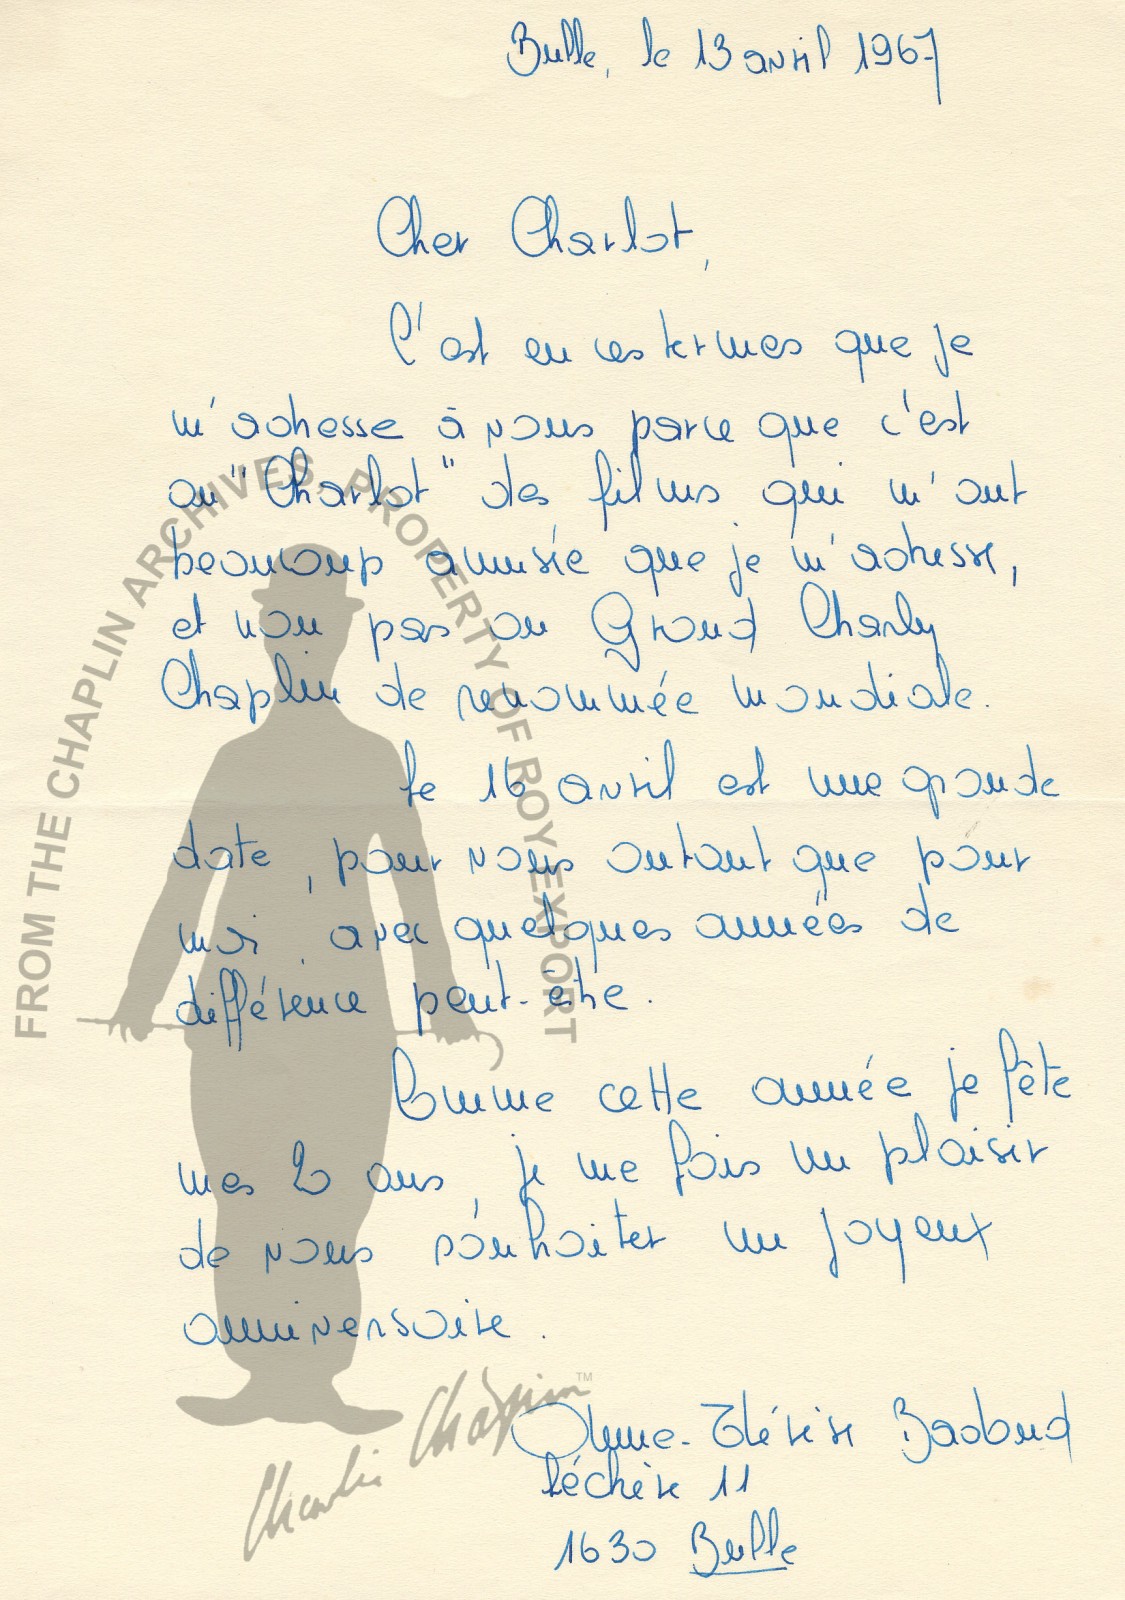 Bulle, le 13 avril 1967
Cher Charlot,
C'est en ces termes que je
m'adresse à vous parce que c'est
au "Charlot" des films qui m'ont
beaucoup amusée que je m'adresse,
et non pas au Grand Charly
Chaplin de renommée mondiale.
Le 16 avril est une grande
date, pour vous autant que pour
moi, avec quelques années de
différence peut-être.
Comme cette année je fête
mes 20 ans, je me fais un plaisir
de vous souhaiter un joyeux
anniversaire.
Anne-Thérèse
Léchère 11
1630 Bulle
FROM THE CHAPLIN ARCHIVES, PROPERTY OF ROY EXPORT
Charlie Chaplin TM